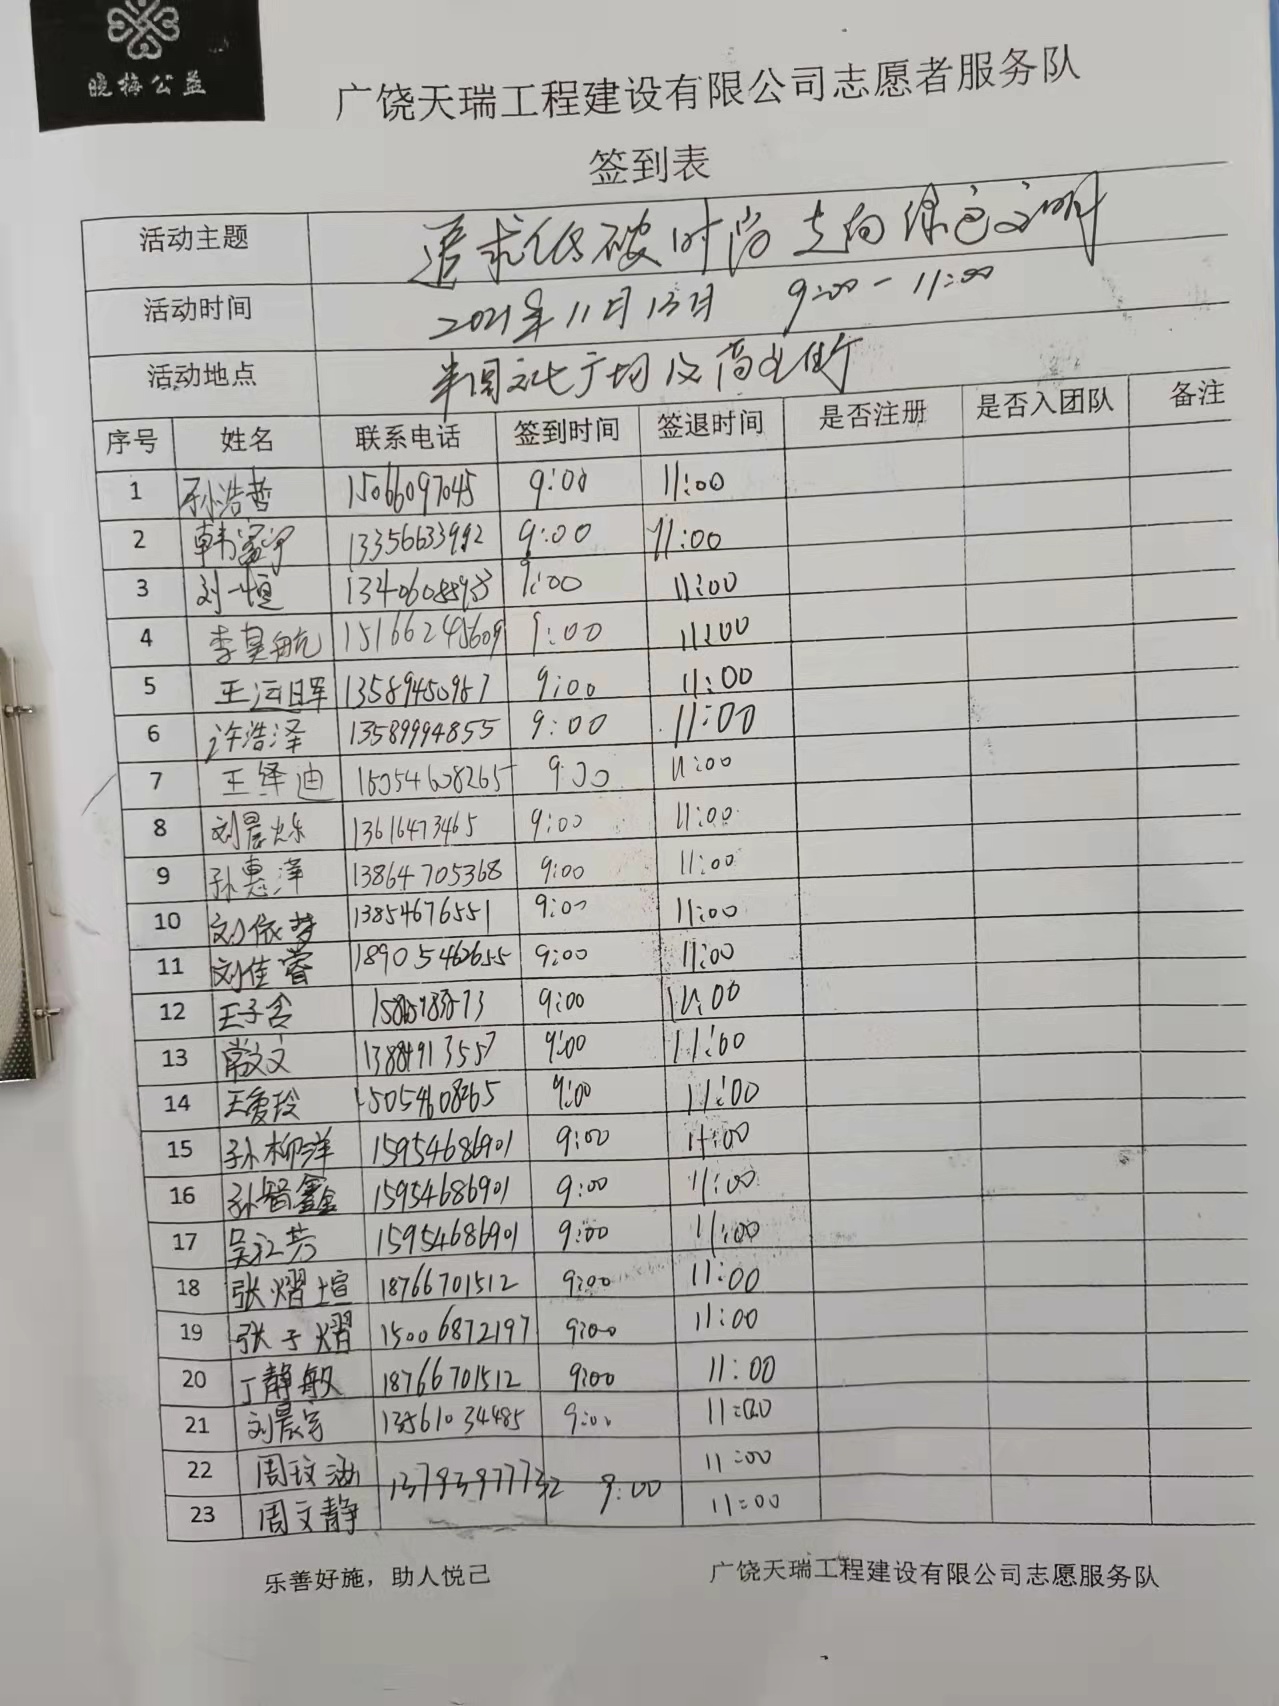 晓梅公益
广饶天瑞工程建设有限公司志愿者服务队
签到表
活动主题 追求低破时尚 走向绿色文明
活动时间 2021年11月13日 9:00-11:00
活动地点 半闰文化广场及商业街
序号 姓名 联系电话 签到时间 签退时间 是否注册 是否入团队 备注
1 孙浩哲 15066097045 9:00 11:00
2 韩 13356633992 9:00 11:00
3 刘一恒 9:00 11:00
4 李昊航 9:00 11:00
5 王运晖 13589450987 9:00 11:00
6 许浩泽 13589994855 9:00 11:00
7 王铎迪 15054608265 9:00 11:00
8 刘晨烁 13616473465 9:00 11:00
9 孙惠泽 13864705368 9:00 11:00
10 刘依梦 13854676551 9:00 11:00
11 刘佳睿 18905462655 9:00 11:00
12 王子含 9:00 11:00
13 常文文 9:00 11:00
14 王爱玲 15054608265 9:00 11:00
15 孙柳洋 15954686901 9:00 11:00
16 孙智鑫 15954686901 9:00 11:00
17 吴红芳 15954686901 9:00 11:00
18 张熠煊 18766701512 9:00 11:00
19 张子熠 15006872197 9:00 11:00
20 丁静敏 18766701512 9:00 11:00
21 刘晨宇 13561034485 9:00 11:00
22 周玟涵 13793977732 9:00 11:00
23 周文静 11:00
乐善好施，助人悦己 广饶天瑞工程建设有限公司志愿服务队